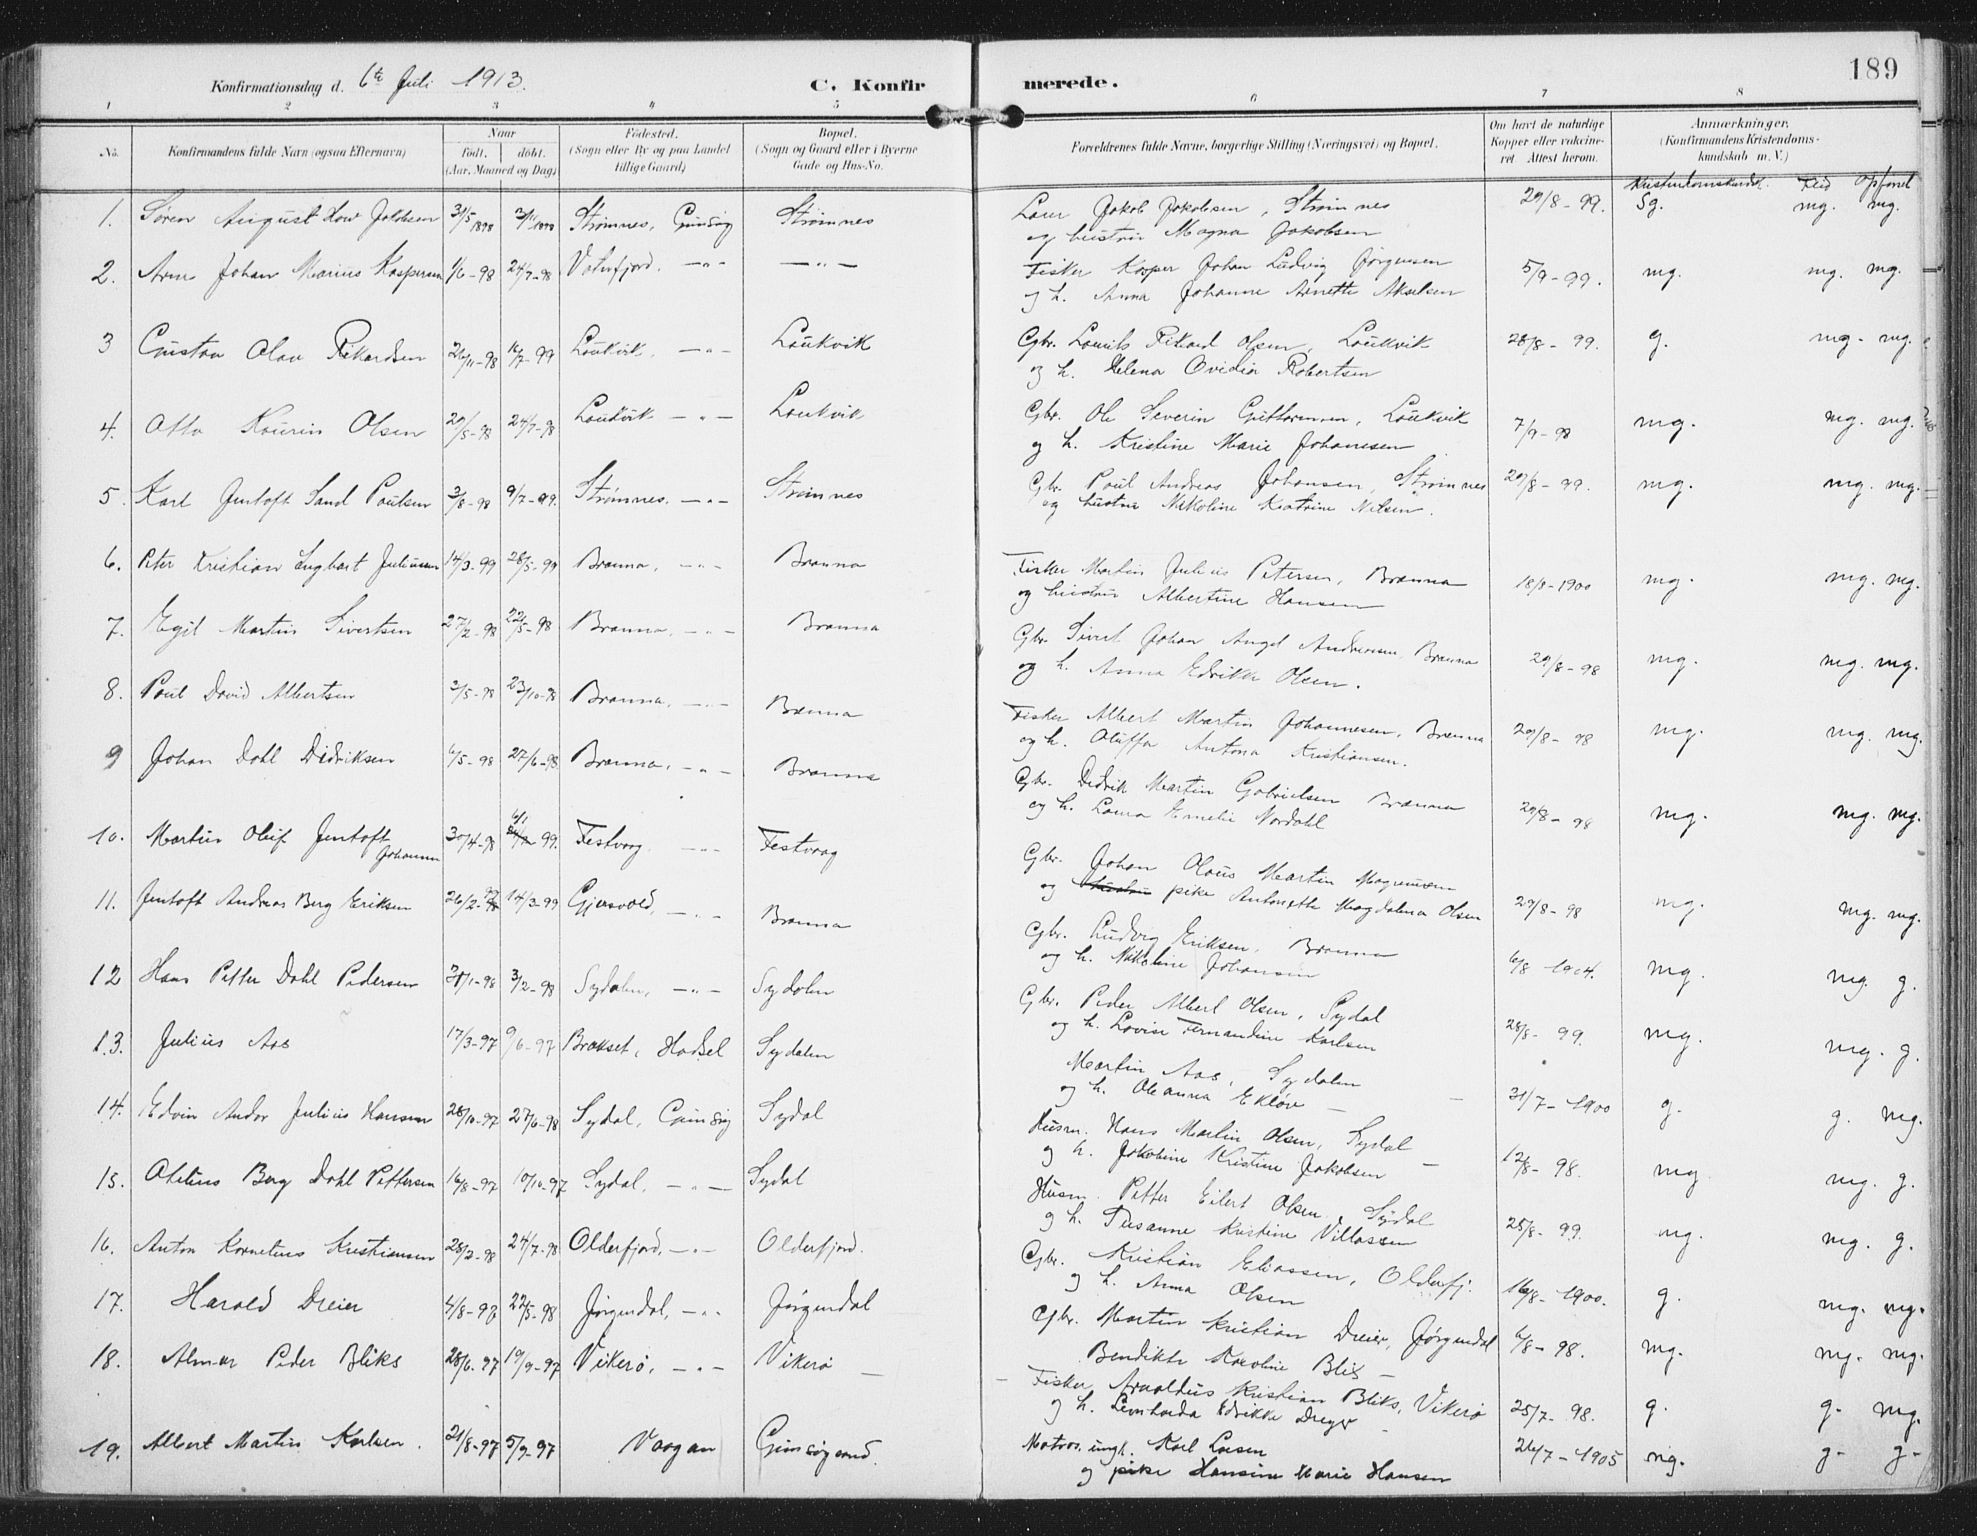 189
Konfirmationsdag d. 6te Juli 1913.
C. Konfirmerede.
1 2 3 4 5 6 7 8
No.
Konfirmandens fulde Navn (ogsaa Efternavn)
Naar
födt. döbt.
(Aar, Maaned og Dag)
Födested.
(Sogn eller By og paa Landet
tillige Gaard)
Bopæl.
(Sogn og Gaard eller i Byerne
Gade og Hus-No.
Forældrenes fulde Navne, borgerlige Stilling (Næringsvei) og Bopæl.
Om havt de naturlige
Kopper eller vakcine-
ret Attest herom.
Anmærkninger.
(Konfirmandens Kristendoms-
kundskab m. V.)
Kristendomskundsk. Flid Opførsel
1. Søren August Jakobsen 31/5 1898 Strømnes, Gimsøy Strømnes
Jakob Jakobsen, Strømnes 29/8-99. Sg. mg. mg.
og hustru Magna Jakobsen
2. Arne Johan Marius Kaspersen 1/6-98 24/7-98 Vaterfjord. —"— —"—
Fisker Kasper Johan Ludvig Jørgensen 5/9-99. mg. mg. mg.
og h. Anna Johanne Arnette Akselsen
3 Gustav Olav Rikardsen 26/11-98 16/7-99 Laukvik, —"— Laukvik
Gbr. Laurits Rikard Olsen, Laukvik 28/8-99. g. mg. mg.
og h. Helena Ovidia Robertsen
4. Otto Kaurin Olsen 29/5-98 24/7-98 Laukvik —"— Laukvik
Gbr. Ole Severin Guttormsen, Laukvik 7/9-98 mg. mg. mg.
og h. Kristine Marie Johannesen
5. Karl Jentoft Sand Paulsen 3/8-98 9/7-99. Strømnes. —"— Strømnes
Gbr. Paul Andreas Johansen, Strømnes 29/8-99. mg. mg. mg.
og hustru Nikoline Katrine Nilsen.
6. Peter Kristian Engbart Juliussen 14/3-99 28/5-99 Brænna, —"— Brænna
Fisker Martin Julius Petersen, Brænna 18/8-1900 mg. mg. mg.
og hustru Albertine Hansen
7. Egil Martin Sivertsen 27/2-98 22/5-98 Brænna, —"— Brænna
Gbr. Sivert Johan Angel Andreassen, Brænna 29/8-98 mg. mg. mg.
og h. Anna Edrikke Olsen.
8. Paul David Albertsen 2/5-98 23/10-98 Brænna, —"— Brænna
Fisker Albert Martin Johannesen, Brænna 29/8-98 mg. mg. mg.
og h. Oluffa Antona Kristiansen.
9 Johan Dahl Didriksen 6/5-98 27/6-98 Brænna, —"— Brænna
Gbr. Didrik Martin Gabrielsen Brænna 29/8-98 mg. mg. mg.
og h. Laura Emelie Nordahl
10. Martin Oluf Jentoft 30/4-98 6/1 99. Festvaag —"— Festvaag
Johansen
Gbr. Johan Olaus Martin Magnussen 29/8-98 mg. mg. mg.
og pike Antonette Magdalena Olsen
11. Jentoft Andreas Berg Eriksen 26/2- 14/3-99 Gjersvold, —"— Brænna
Gbr. Ludvig Eriksen, Brænna 6/8 1904. mg. mg. g.
og h. Nikoline Johansen
12 Hans Petter Dahl Pedersen 31/1-98 3/2-98 Sydalen, —"— Sydalen
Gbr. Peder Albert Olsen, Sydal 28/8-99. mg. mg. g.
og h. Lovise Fernandine Karlsen
13. Julius Aas 17/3-97 9/6-97 Brokset, Hadsel Sydalen
Martin Aas, Sydalen 31/7-1900 g. g. mg.
og h. Oleanna Ekløv —
14. Edvin Andor Julius Hansen 28/10-97 27/6-98 Sydal, Gimsøy Sydal
Husm. Hans Martin Olsen, Sydal 12/8-98. mg. mg. g.
og h. Jakobine Kristine Jakobsen
15. Otelius Berg Dahl Pettersen 16/8-97 10/10-97 Sydal, —"— Sydal
Husm. Petter Eilert Olsen, Sydal 25/8-99. mg. mg. g.
og h. Susanne Kristine Villassen
16. Anton Kornelius Kristiansen 28/2-98 24/7-98 Olderfjord, —"— Olderfjord.
Gbr. Kristian Eliassen, Olderfj. 16/8-1900. g. mg. mg.
og h. Anna Olsen
17. Harald Dreier 4/8-97 22/5-98 Jørgendal, —"— Jørgendal
Gbr. Martin Kristian Dreier, Jørgendal 6/8-98. mg. mg. mg.
Bendikte Karoline Blix —
18. Almar Peder Bliks 28/6-97 19/9-97 Vikerø, —"— Vikerø —
Fisker Arnoldus Kristian Bliks, Vikerø 25/7-98. g. g. mg.
og h. Leonharda Edrikke Dreyer
19. Albert Martin Karlsen. 21/8-97 5/9-97 Vaagan Gimsøysand.
Matros. ungk. Karl Larsen 26/7-1905 mg. g. g.
og pike Hansine Marie Hansen